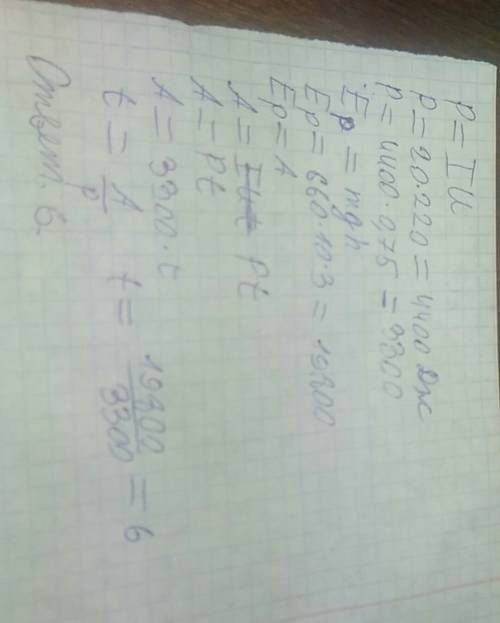 P = IU
P = 20·220 = 4400 Дж
P = 4400·0,75 = 3300
Ep = mgh
Ep = 660·10·3 = 19800
Ep = A
A = Pt
A = Pt
A = 3300·t
t = A/P t = 19800/3300 = 6
Ответ. 6